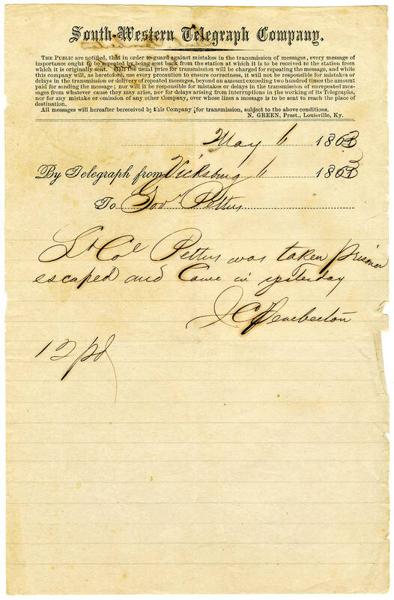 South-Western Telegraph Company.
THE PUBLIC are notified, that in order to guard against mistakes in the transmission of messages, every message of
importance ought to be repeated by being sent back from the station at which it is to be received to the station from
which it is originally sent. Half the usual price for transmission will be charged for repeating the message, and while
this company will, as heretofore, use every precaution to ensure correctness, it will not be responsible for mistakes or
delays in the transmission or delivery of repeated messages, beyond an amount exceeding two hundred times the amount
paid for sending the message; nor will it be responsible for mistakes or delays in the transmission of unrepeated messages
from whatever cause they may arise, nor for delays arising from interruptions in the working of its Telegraphs,
nor for any mistake or omission of any other Company, over whose lines a message is to be sent to reach the place of
destination.
All messages will hereafter be received by this Company for transmission, subject to the above conditions.
N. GREEN, Prest., Louisville, Ky.
May 6 1863
By Telegraph from Vicksburg 6 1863
To Gov. Pettus
Lt Col Pettus was taken prisoner
escaped and Came in yesterday
J C Pemberton
12 pd